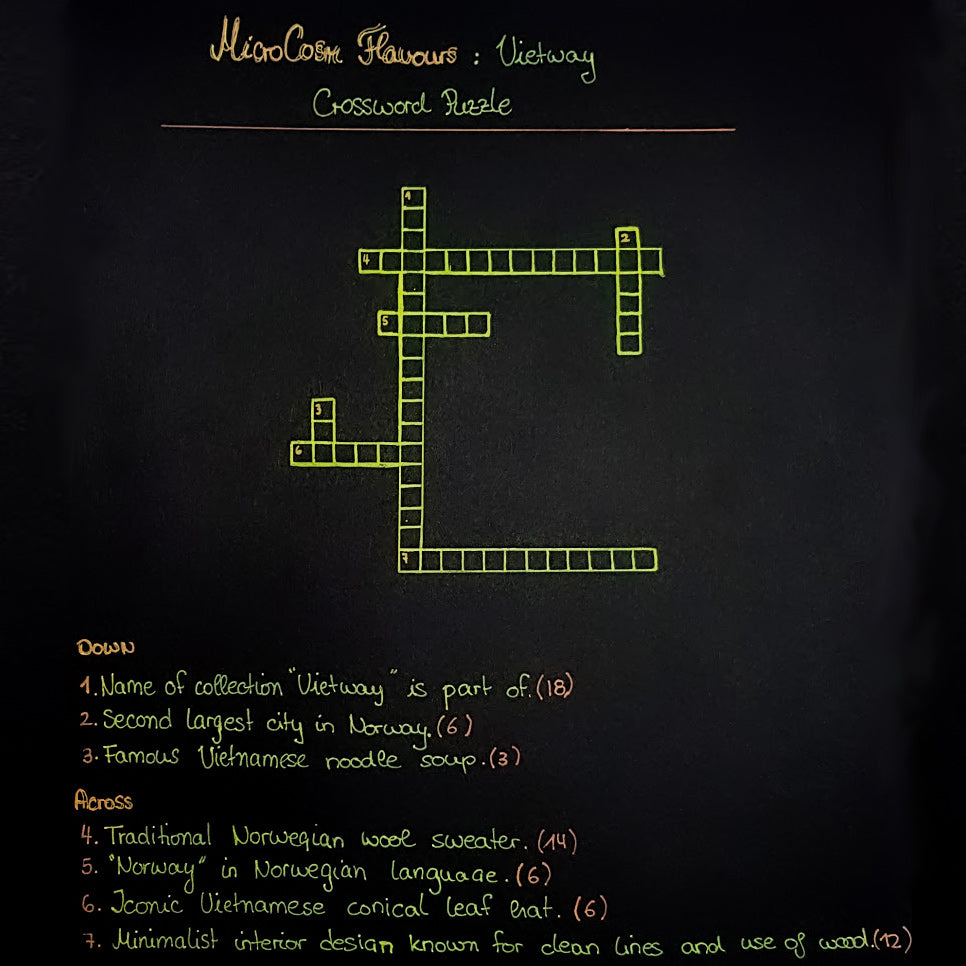 MicroCosm Flavours : Vietway
Crossword Puzzle
1
2
4
5
3
6
7
Down
1. Name of collection "Vietway" is part of. (18)
2. Second largest city in Norway. (6)
3. Famous Vietnamese noodle soup. (3)
Across
4. Traditional Norwegian wool sweater. (14)
5. "Norway" in Norwegian language. (6)
6. Iconic Vietnamese conical leaf hat. (6)
7. Minimalist interior design known for clean lines and use of wood. (12)